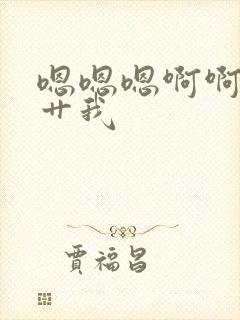 嗯嗯嗯啊啊
艹我
贾福昌